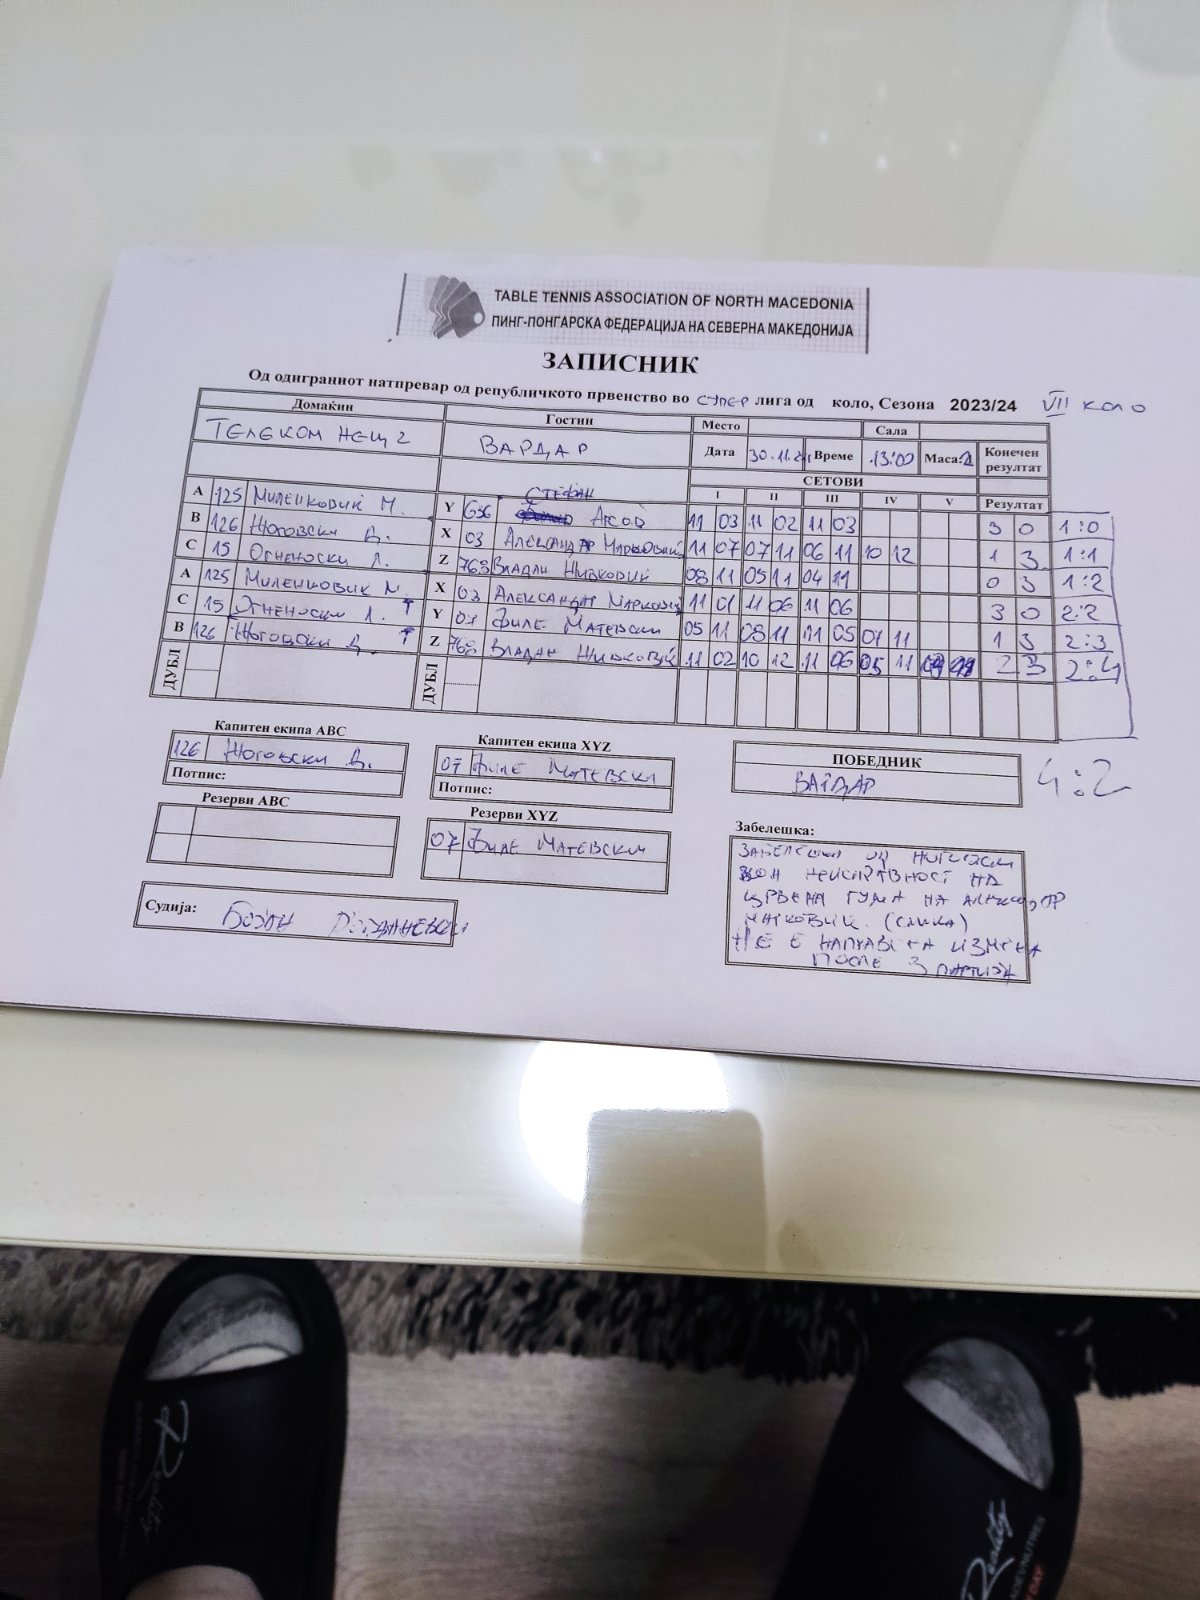 TABLE TENNIS ASSOCIATION OF NORTH MACEDONIA
ПИНГ-ПОНГАРСКА ФЕДЕРАЦИЈА НА СЕВЕРНА МАКЕДОНИЈА
ЗАПИСНИК
Од одиграниот натпревар од републичкото првенство во СУПЕР лига од коло, Сезона 2023/24 VII коло
Домаќин Гостин Место Сала
ТЕЛЕКОМ НЕЦ 2 ВАРДАР Дата Време 13:00 Маса: Конечен резултат
СЕТОВИ
I II III IV V Резултат
A 125 МИЛЕНКОВИЌ М. Y 636 СТЕФАН 11 03 11 02 11 03 3 0 1:0
B 126 X 03 АЛЕКСАНДАР МАРКОВИЌ 11 07 07 11 06 11 10 12 1 3 1:1
C 15 Л. Z 765 ВЛАДАН ЖИВКОВИЌ 08 11 05 11 04 11 0 3 1:2
A 125 МИЛЕНКОВИЌ М. X 03 АЛЕКСАНДАР МАРКОВИЌ 11 01 11 06 11 06 3 0 2:2
C 15 ОГНЕНОСКИ Л. Y 07 ФИЛЕ МАТЕВСКИ 05 11 08 11 11 05 07 11 1 3 2:3
B 126 Z 765 ВЛАДАН ЖИВКОВИЌ 11 02 10 12 11 06 05 11 2 3 2:4
ДУБЛ ДУБЛ
Капитен екипа ABC Капитен екипа XYZ
126 07 ФИЛЕ МАТЕВСКИ ПОБЕДНИК
Потпис: Потпис: ВАРДАР 4:2
Резерви ABC Резерви XYZ
07 ФИЛЕ МАТЕВСКИ Забелешка:
ЗАБЕЛЕШКА ОД
НЕИСПРАВНОСТ НА
ЦРВЕНА ГУМА НА АЛЕКСАНДАР
МАРКОВИЌ. (СЛИКА)
НЕ Е НАПРАВЕНА ИЗМЕНА
ПОСЛЕ 3 ПАРТИЈА
Судија: БОЈАН
Reality
Reality